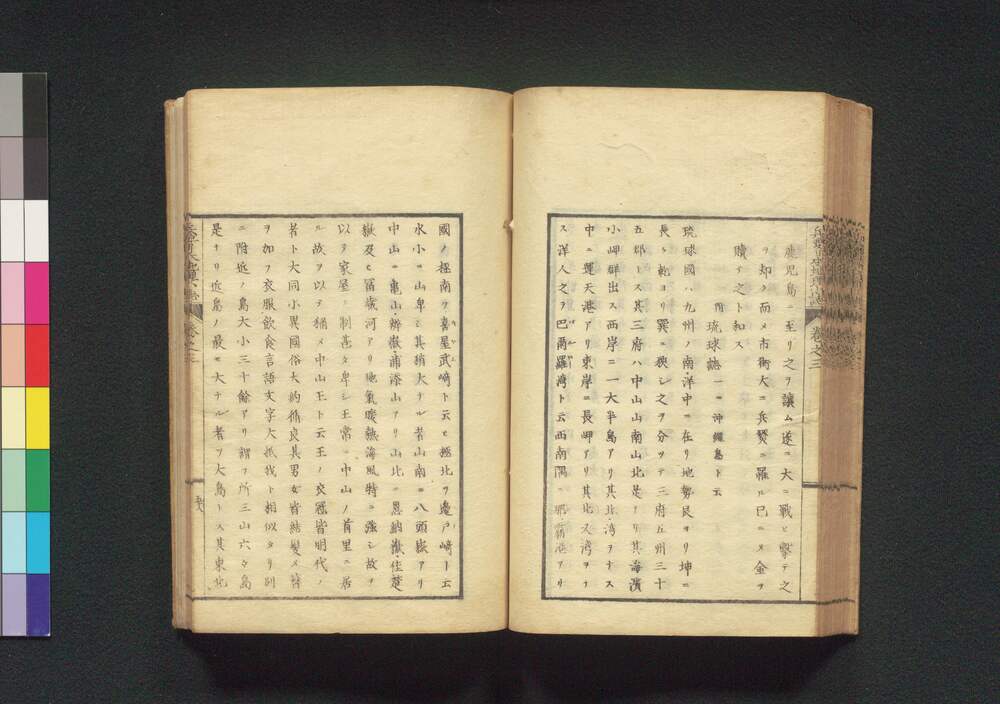 鹿児島ニ至リ之ヲ讓ム遂ニ大ニ戰ヒ撃テ之
ヲ却ク而メ市街大ニ兵燹ニ羅ル已ニメ金ヲ
贖テ之ト和ス
琉球 一ニ沖縄島ト云
琉球國ハ九州ノ南洋中ニ在リ地勢艮ヨリ坤ニ
長ク乾ヨリ巽ニ狹シ之ヲ分ツテ三府五州三十
五郡トス其三府ハ中山山南山北是ナリ其海濱
小岬群出ス西岸ニ一大半島アリ其北湾ヲナス
中ニ運天港アリ東岸ニ長岬アリ其北又湾ヲナ
ス洋人之ヲ巴爾羅湾ト云西南隅ニ那覇港アリ
國ノ極南ヲ喜屋武崎ト云ヒ極北ヲ邊戸崎ト云
水小ニ山卑シ其稍大ナル者山南ニ八頭嶽アリ
中山ニ亀山辨嶽浦添山アリ山北ニ恩納嶽佳楚
嶽及ヒ冨歳河アリ地氣暖熱海風特ニ強シ故ヲ
以テ家屋ノ制甚タ卑シ王常ニ中山ノ首里ニ居
ル故ヲ以テ稱メ中山王ト云王ノ衣冠皆明代ノ
者ト大同小異國俗大約脩良其男女皆結髪メ簪
ヲ加フ衣服飲食言語文字大抵我ト相似タリ別
ニ附近ノ島大小三十餘アリ謂フ所三山六々島
是ナリ近島ノ最モ大ナル者ヲ大島トス其東北
卷之三